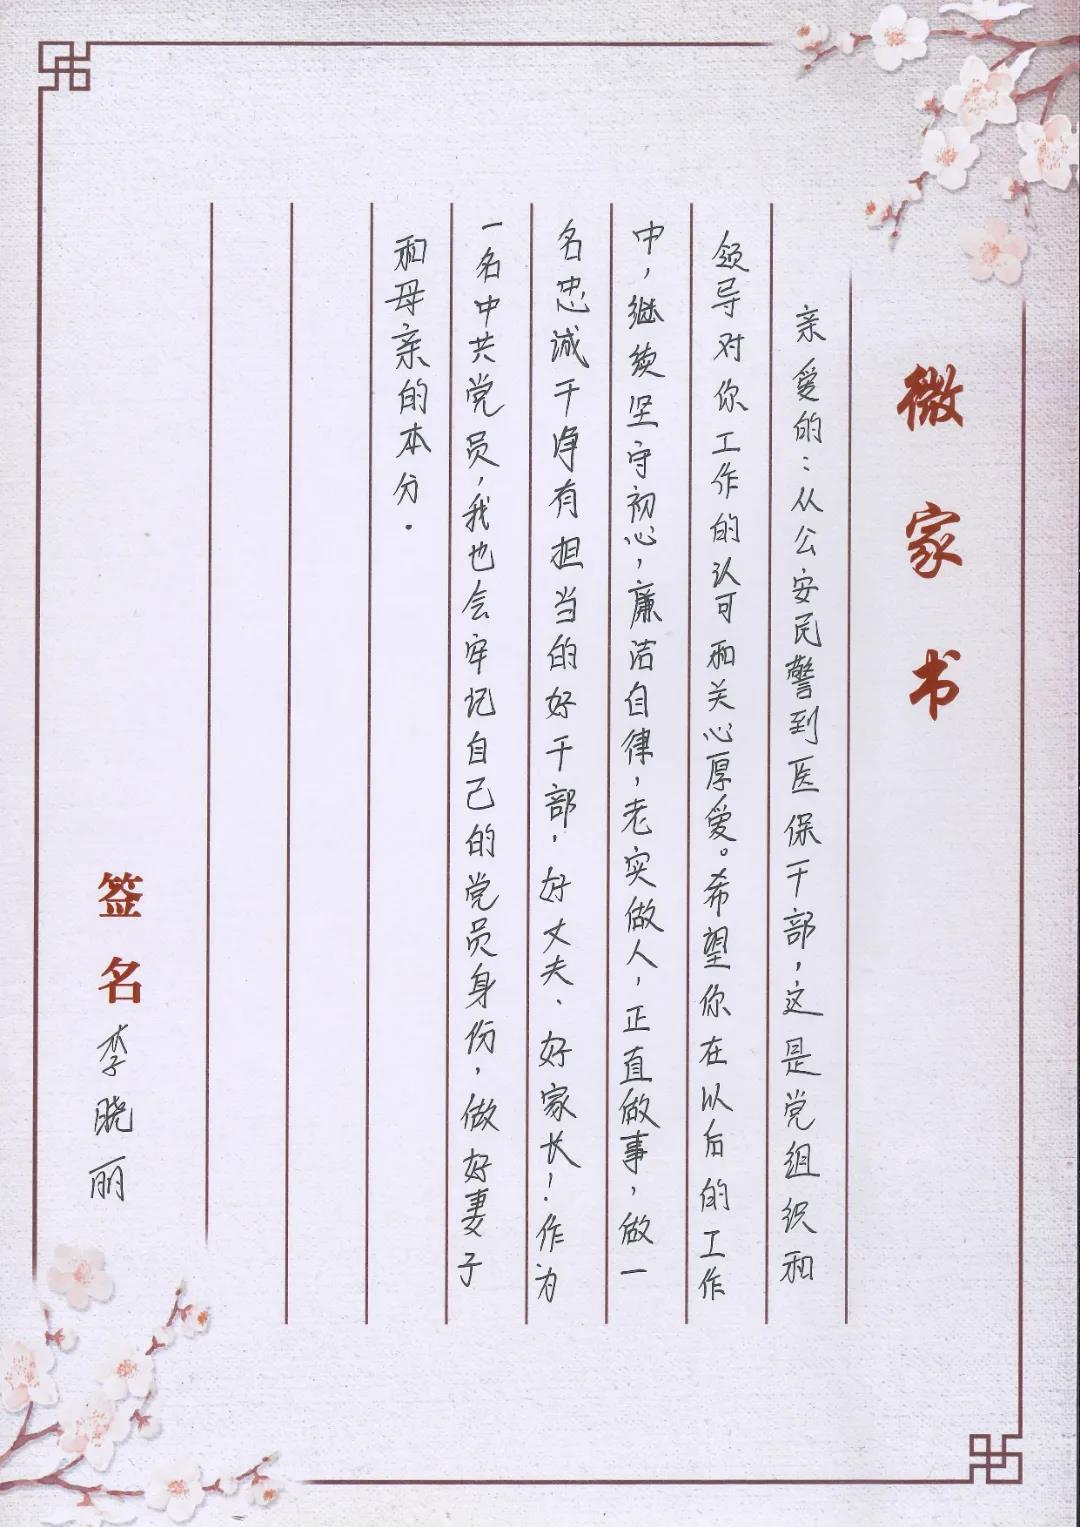 微家书
亲爱的：从公安民警到医保干部，这是党组织和
领导对你工作的认可和关心厚爱。希望你在以后的工作
中，继续坚守初心，廉洁自律，老实做人，正直做事，做一
名忠诚干净有担当的好干部、好丈夫、好家长！作为
一名中共党员，我也会牢记自己的党员身份，做好妻子
和母亲的本分.
签名 李晓丽